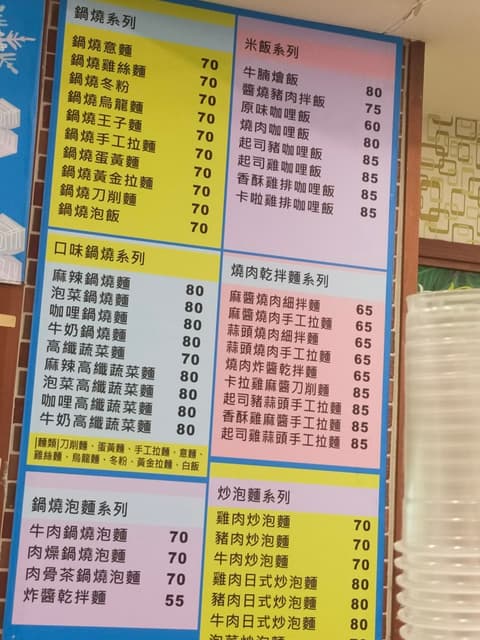 鍋燒系列
鍋燒意麵 70
鍋燒雞絲麵 70
鍋燒冬粉 70
鍋燒烏龍麵 70
鍋燒王子麵 70
鍋燒手工拉麵 70
鍋燒蛋黃麵 70
鍋燒黃金拉麵 70
鍋燒刀削麵 70
鍋燒泡飯 70
米飯系列
牛腩燴飯 80
醬燒豬肉拌飯 75
原味咖哩飯 60
燒肉咖哩飯 80
起司豬咖哩飯 85
起司雞咖哩飯 85
香酥雞排咖哩飯 85
卡啦雞排咖哩飯 85
口味鍋燒系列
麻辣鍋燒麵 80
泡菜鍋燒麵 80
咖哩鍋燒麵 80
牛奶鍋燒麵 80
高纖蔬菜麵 70
麻辣高纖蔬菜麵 80
泡菜高纖蔬菜麵 80
咖哩高纖蔬菜麵 80
牛奶高纖蔬菜麵 80
|麵類|刀削麵、蛋黃麵、手工拉麵、意麵、
雞絲麵、烏龍麵、冬粉、黃金拉麵、白飯
燒肉乾拌麵系列
麻醬燒肉細拌麵 65
麻醬燒肉手工拉麵 65
蒜頭燒肉細拌麵 65
蒜頭燒肉手工拉麵 65
燒肉炸醬乾拌麵 65
卡拉雞麻醬刀削麵 85
起司豬蒜頭手工拉麵 85
香酥雞麻醬手工拉麵 85
起司雞蒜頭手工拉麵 85
鍋燒泡麵系列
牛肉鍋燒泡麵 70
肉燥鍋燒泡麵 70
肉骨茶鍋燒泡麵 70
炸醬乾拌麵 55
炒泡麵系列
雞肉炒泡麵 70
豬肉炒泡麵 70
牛肉炒泡麵 70
雞肉日式炒泡麵 80
豬肉日式炒泡麵 80
牛肉日式炒泡麵 80
泡菜炒泡麵